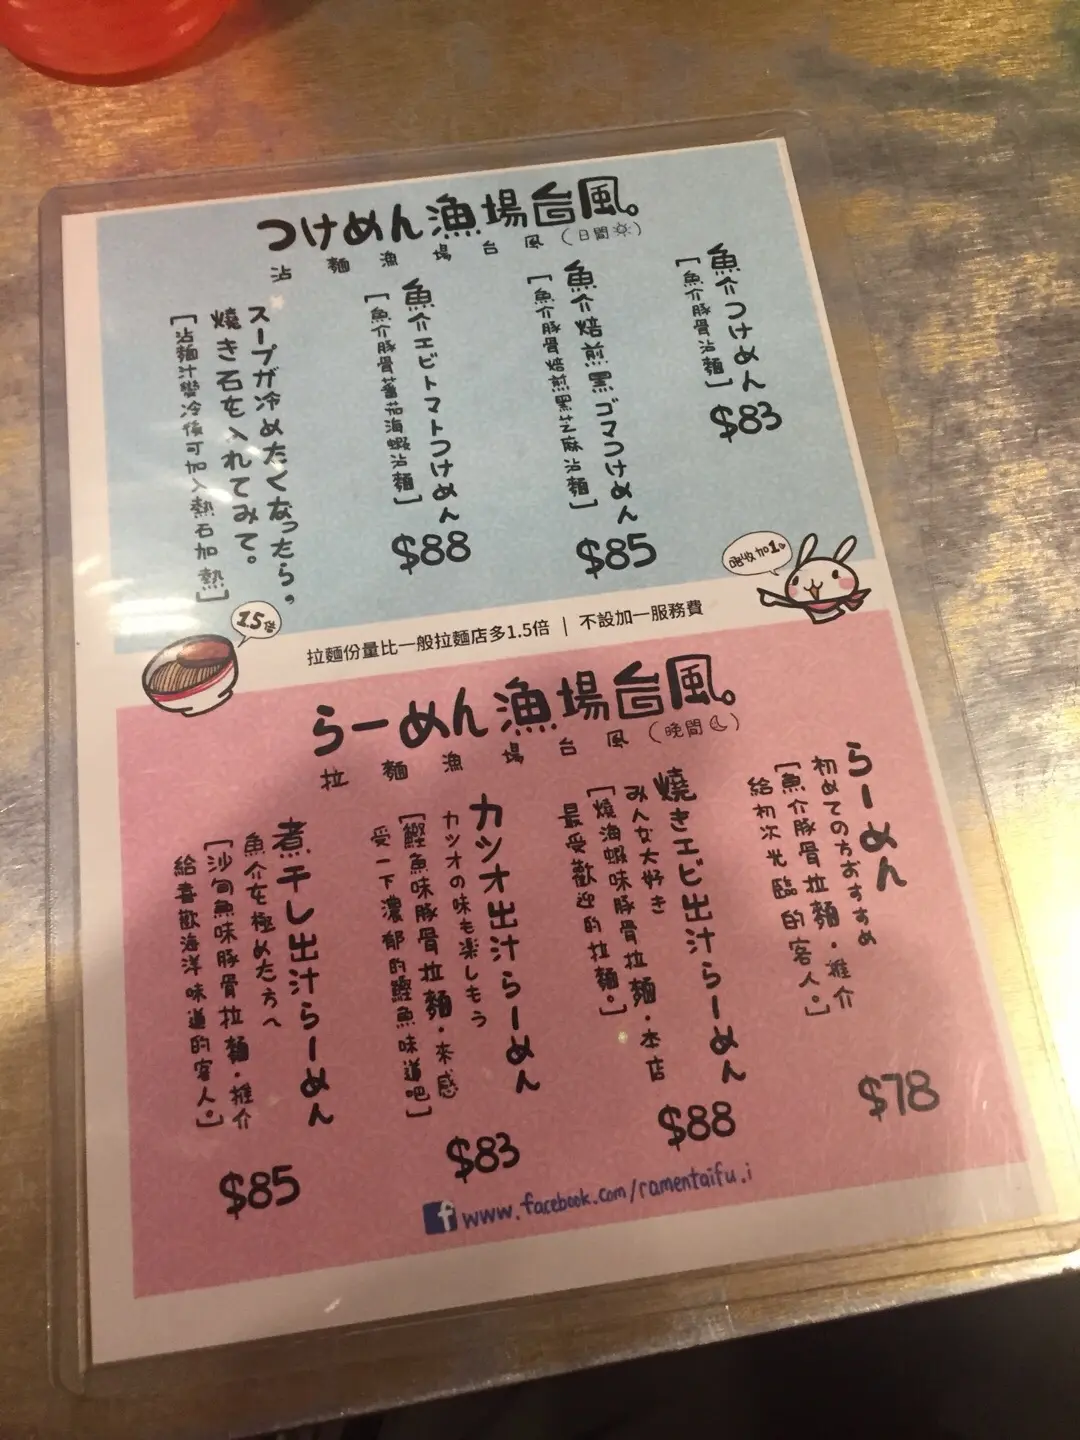 つけめん漁場台風。
沾麵漁場台風(日間)
魚介つけめん
[魚介豚骨沾麵]
$83
魚介焙煎黒ゴマつけめん
[魚介豚骨焙煎黑芝麻沾麵]
$85
魚介エビトマトつけめん
[魚介豚骨蕃茄海蝦沾麵]
$88
スープが冷めたくなったら。
燒き石を入れてみて。
[沾麵汁變冷後可加入熱石加熱]
1.5倍
唔收加1
拉麵份量比一般拉麵店多1.5倍 | 不設加一服務費
らーめん漁場台風。
拉麵漁場台風(晚間)
らーめん
初めての方おすすめ
[魚介豚骨拉麵・推介
給初次光臨的客人。]
$78
燒きエビ出汁らーめん
みんな大好き
[燒海蝦味豚骨拉麵・本店
最受歡迎的拉麵。]
$88
カツオ出汁らーめん
カツオの味も楽しもう
[鰹魚味豚骨拉麵・來感
受一下濃郁的鰹魚味道吧]
$83
煮干し出汁らーめん
魚介を極めた方へ
[沙甸魚味豚骨拉麵・推介
給喜歡海洋味道的客人。]
$85
f www.facebook.com/ramentaifu.i